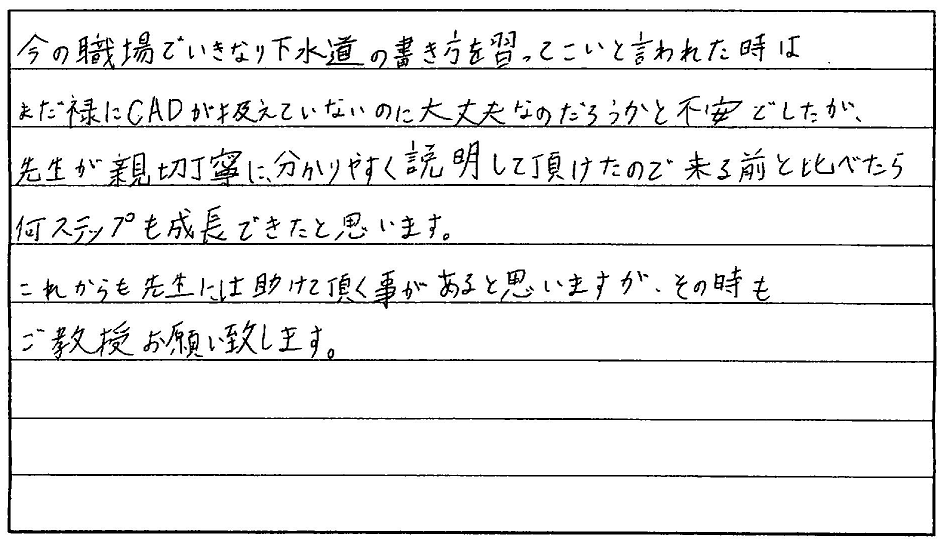 今の職場でいきなり下水道の書き方を習ってこいと言われた時は
まだ禄にCADが扱えていないのに大丈夫なのだろうかと不安でしたが、
先生が親切丁寧に、分かりやすく説明して頂けたので来る前と比べたら
何ステップも成長できたと思います。
これからも先生には助けて頂く事があると思いますが、その時も
ご教授お願い致します。